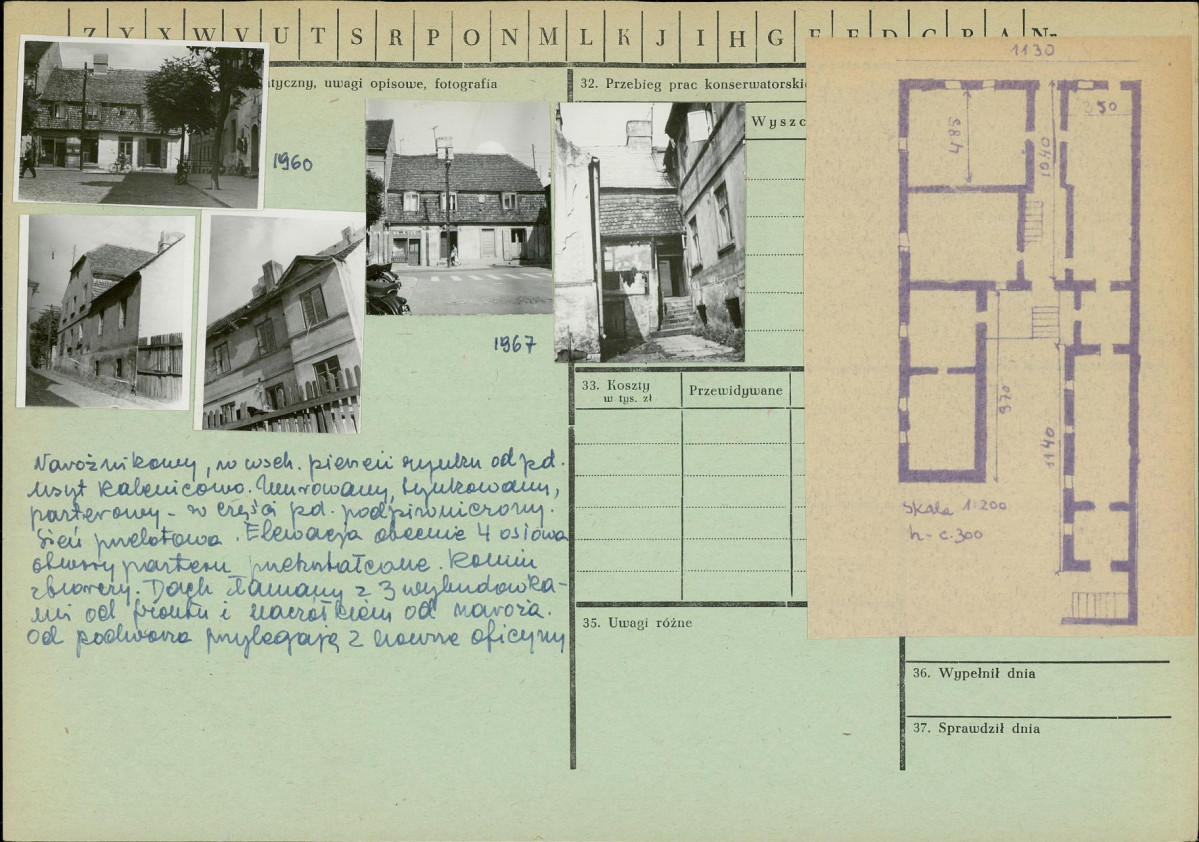 Z Y X W V U T S R P O N M L K J I H G F E D C B A N-
tyczny, uwagi opisowe, fotografia
32. Przebieg prac konserwatorski
Wyszc
1960
1967
33. Koszty
w tys. zł
Przewidywane
Narożnikowy, w wsch. pierzei rynku od pd.
usyt kalenicowo. Murowany, tynkowany,
parterowy - w części pd. podpiwniczony.
Sień przelotowa. Elewacja obecnie 4 osiowa
otwory parteru przekształcone. Komin
zbiorczy. Dach łamany z 3 wybudówka-
mi od frontu i naczółkiem od naroża.
Od podwórza przylegają 2 oficyny
35. Uwagi różne
36. Wypełnił dnia
37. Sprawdził dnia
1130
250
485
1040
970
1140
skala 1:200
h - c. 300